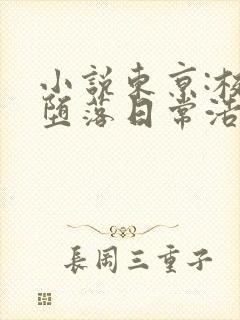 小说东京:校
堕落日常活
長岡三重子